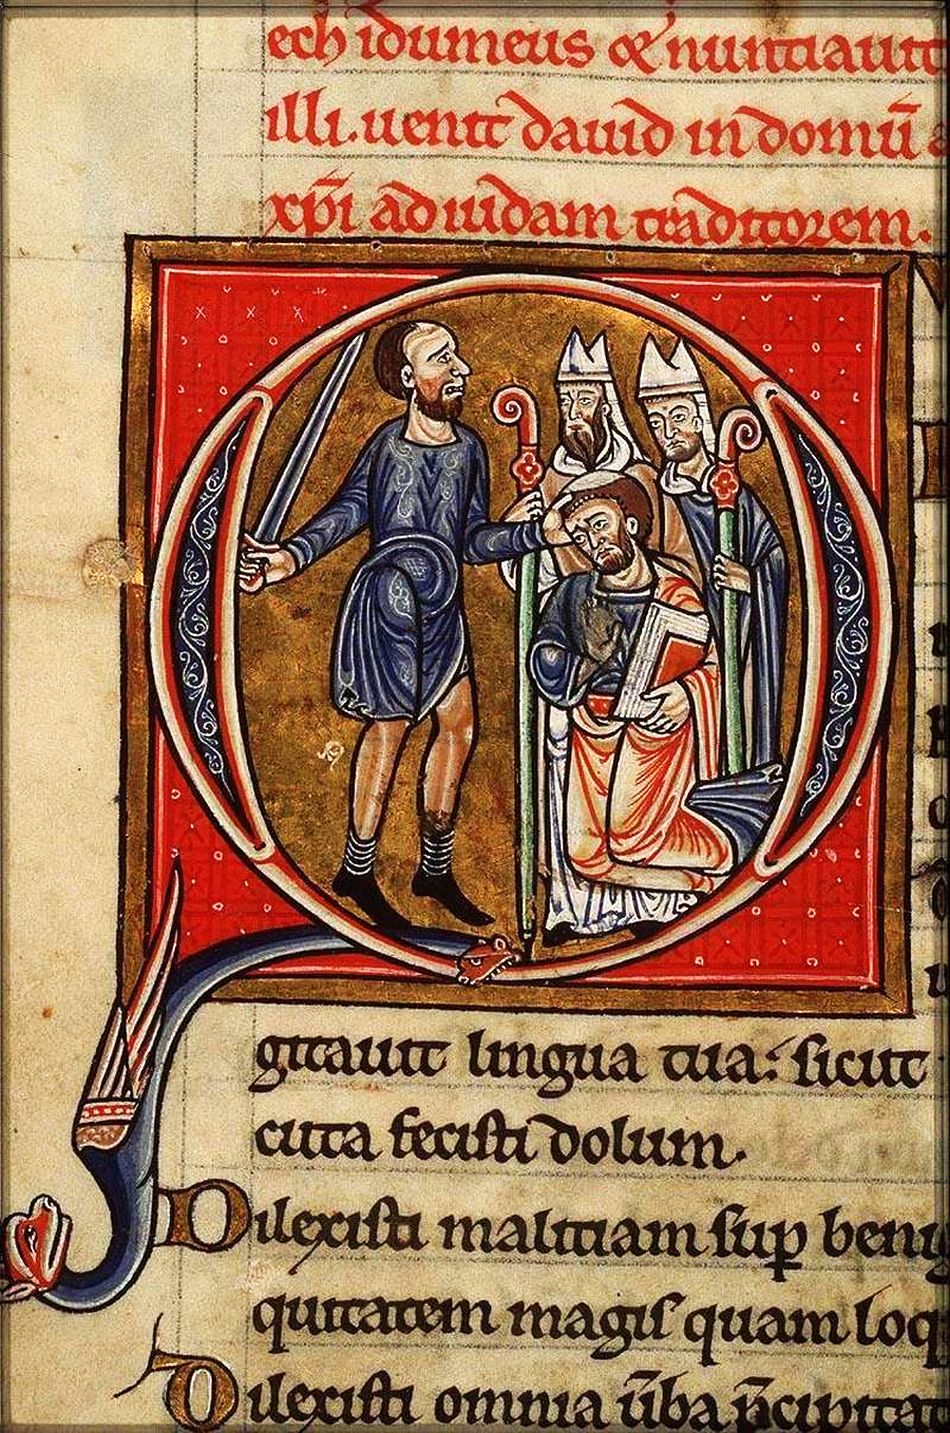 ech idumeus & nuntiauit
illi. uenit dauid in domū a
xp̄i ad iudam traditorem.
Q
gitauit lingua tua: sicut
cuta fecisti dolum.
Dilexisti malitiam sup beni
quitatem magis quam loq
Dilexisti omnia ūba p̄cipitat